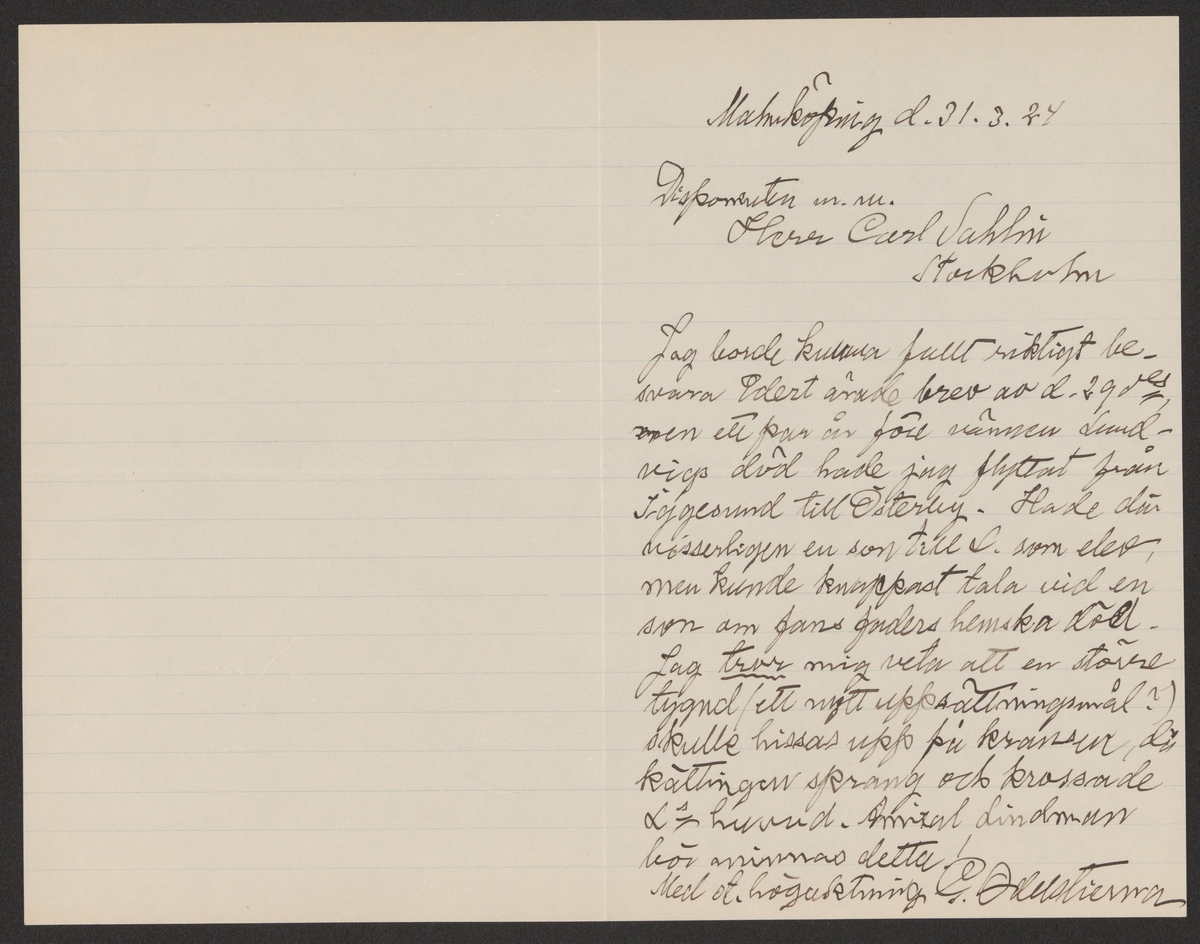 Malmköping d. 31.3.24
Disponenten m.m.
Herr Carl Sahlin
Stockholm
Jag borde kunna fullt riktigt be-
svara Edert ärade brev av d. 29 des
men ett par år före vännen Lund-
vigs död hade jag flyttat från
Iggesund till Österby. Hade där
visserligen en son till L. som elev,
men kunde knappast tala vid en
son om hans faders hemska död.
Jag tror mig veta att en större
tyngd (ett nytt uppsättningsmål?)
skulle hissas upp på kransen, då
kättingen sprang och krossade
L:s huvud. Amiral Lindman
bör minnas detta!
Med st. högaktning G. Odelstierna